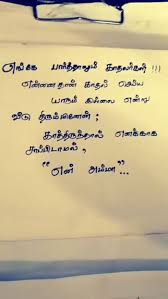 எங்கு பார்த்தாலும் காதலர்கள் !!!
என்னைதான் காதல் செய்ய
யாரும் இல்லை என்று
வீடு திரும்பினேன் ;
காத்திருந்தாள் எனக்காக
சாப்பிடாமல் ,
" என் அம்மா " ...